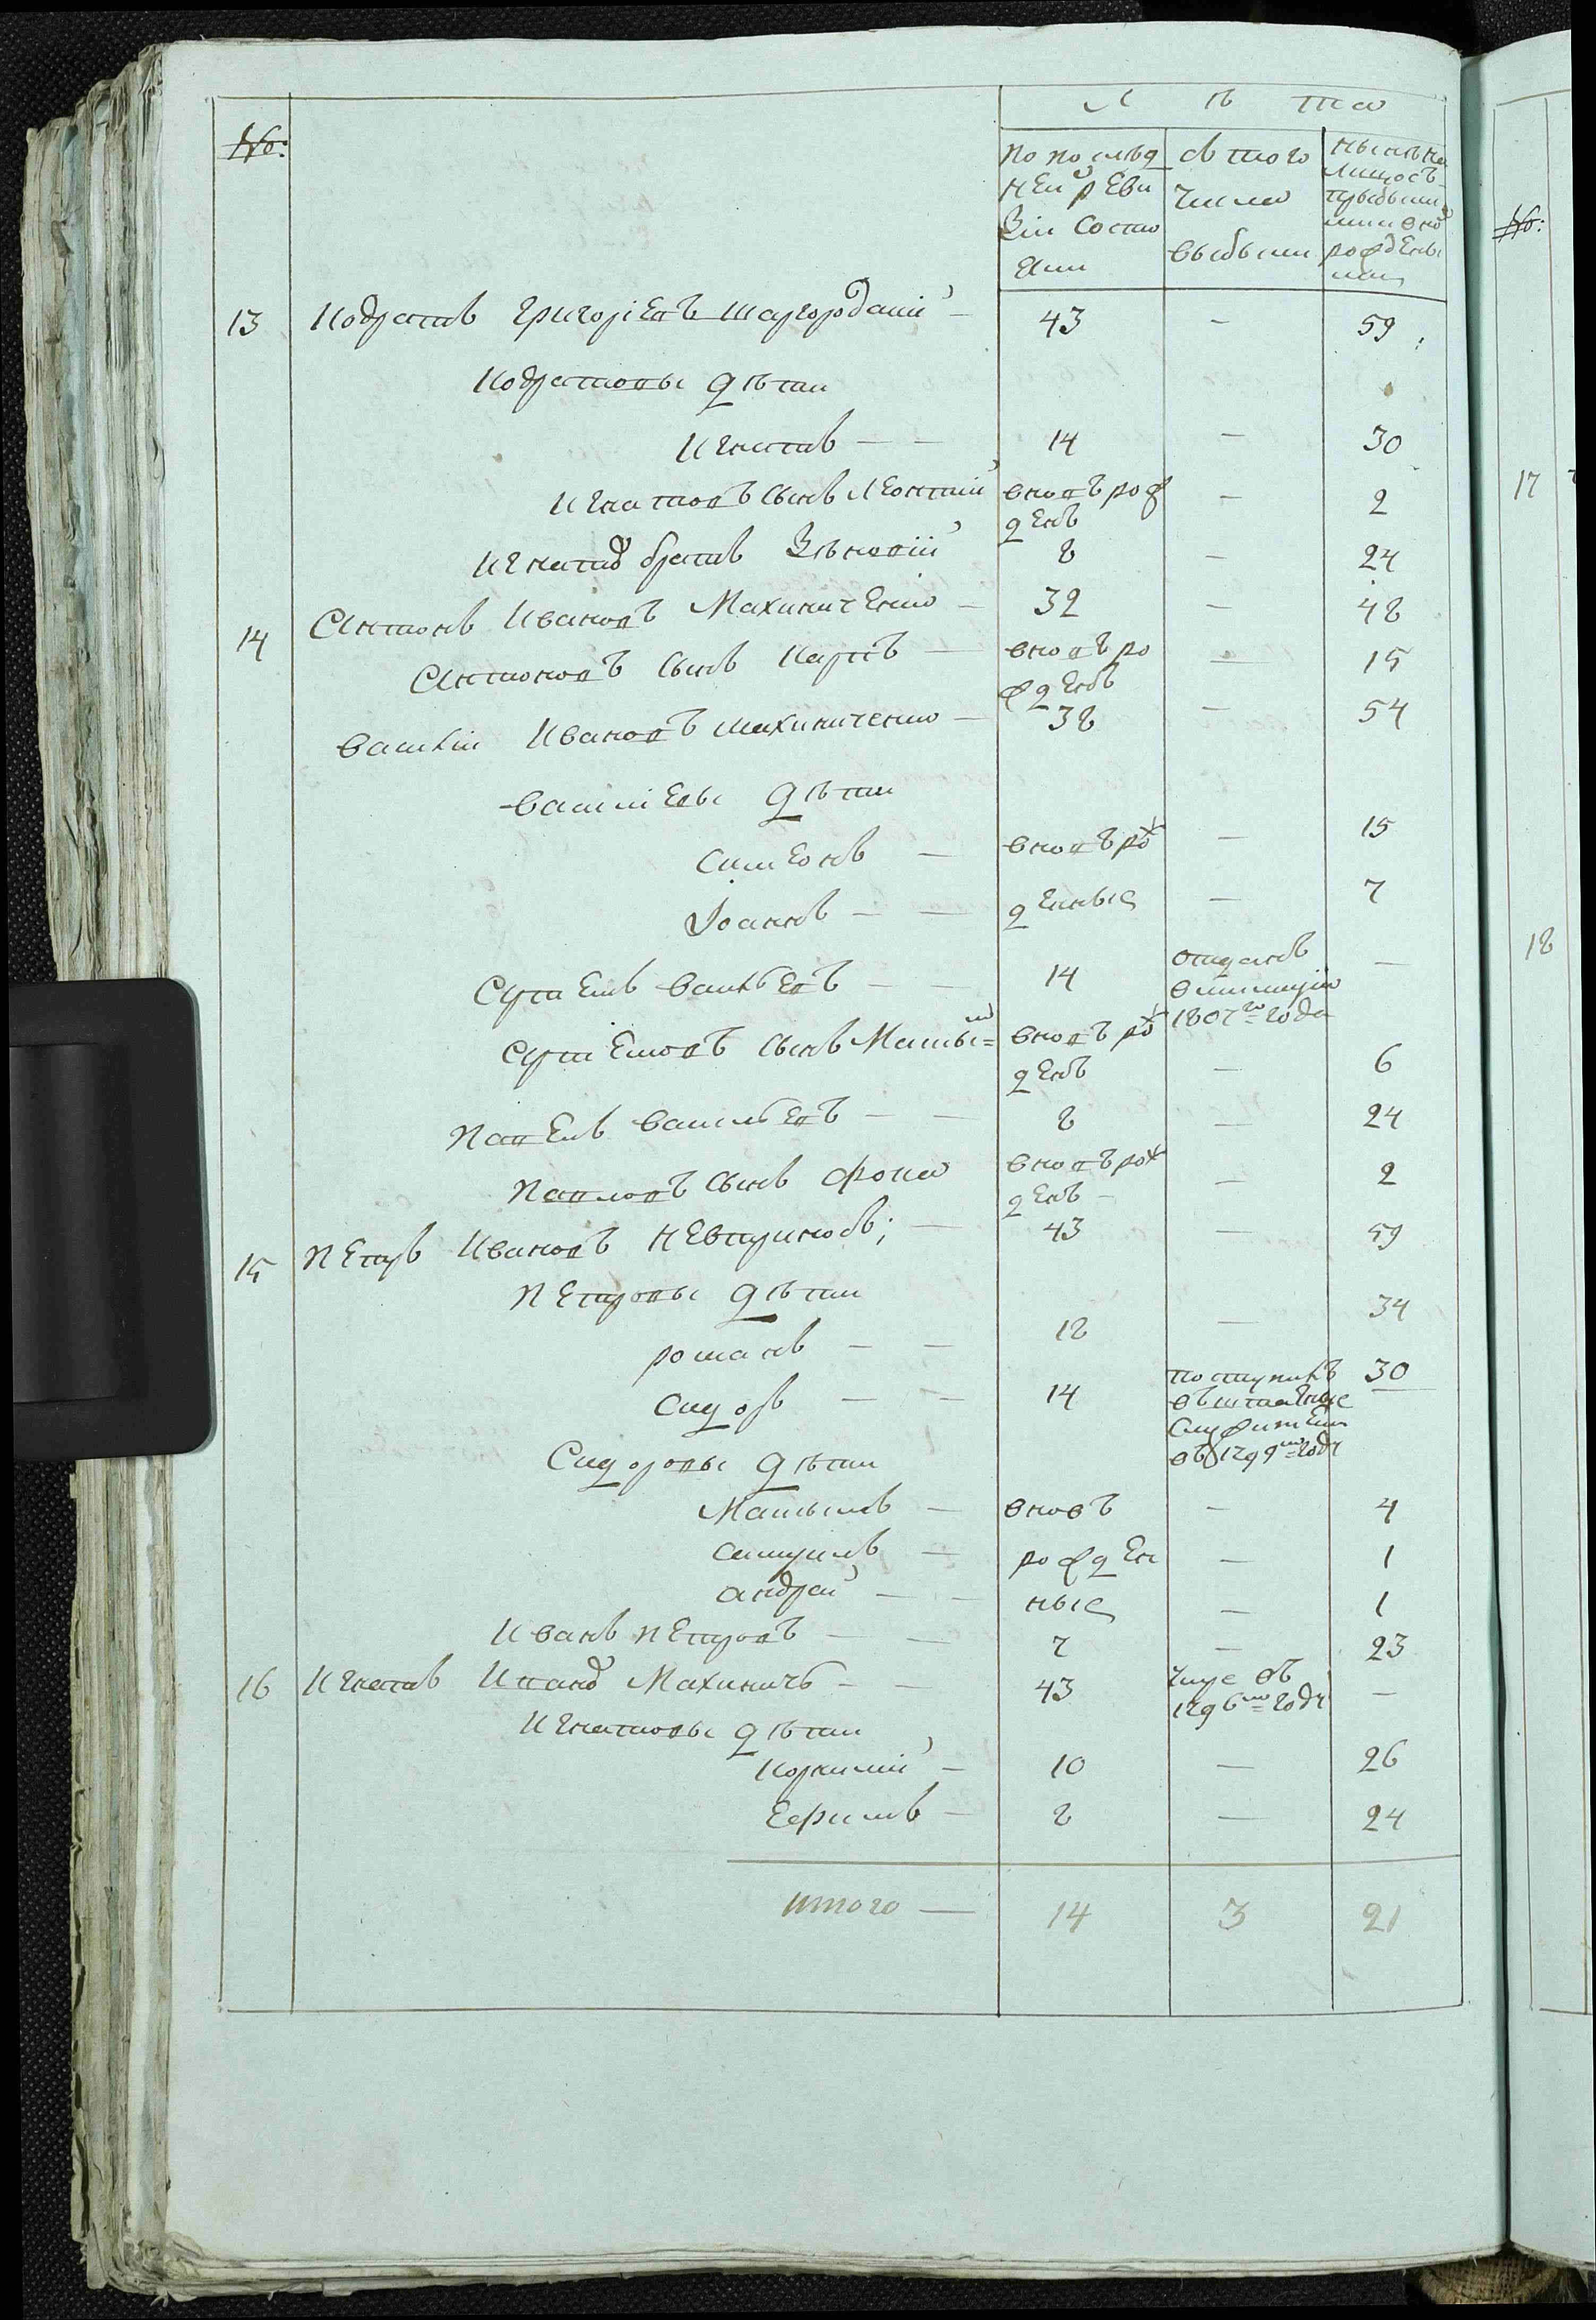 Лѣта
№:
по послѣд
ней реви
зіи состо
яли
с того
числа
выбыли
нынѣ на
лицо съ
прибылы
ми и нов
рожденны
ми
13 Кодратъ Григоріевъ Шаргородскій — 43 — 59
Кодратовы дѣти
Игнатъ — — 14 — 30
Игнатовъ сынъ Леонтій вновъ рож — 2
денъ
Игнатов братъ Зѣновій 8 — 24
14 Антонъ Ивановъ Махиниченко — 32 — 48
Антоновъ сынъ Карпъ — вновъ ро — 15
жденъ
Василій Ивановъ Махиниченко — 38 — 54
Василіевы дѣти
Симеонъ — вновъ рож — 15
Іоаннъ — — денные — 7
Артемъ Васильевъ — — 14 отданъ —
в милицію
1807го года
Артемовъ сынъ Матвей вновъ рож
денъ — 6
Павелъ Васильевъ — — 8 — 24
Павловъ сынъ Фока вновъ рож — 2
денъ —
15 Петръ Ивановъ Невтриносъ; — 43 — 59
Петровы дѣти
Романъ — — 18 — 34
Сидоръ — — 14 поступилъ 30
въ штатные
служители
въ 1799м году
Сидоровы дѣти
Мануилъ — вновъ — 4
Самуилъ — рожден — 1
Андрей — — ные — 1
Иванъ Петровъ — — 7 — 23
16 Игнатъ Иванов Махиничъ — — 43 умре въ —
1796м году
Игнатовы дѣти
Корнилій — 10 — 26
Ефимъ — 8 — 24
Итого — 14 3 21
№:
17
18